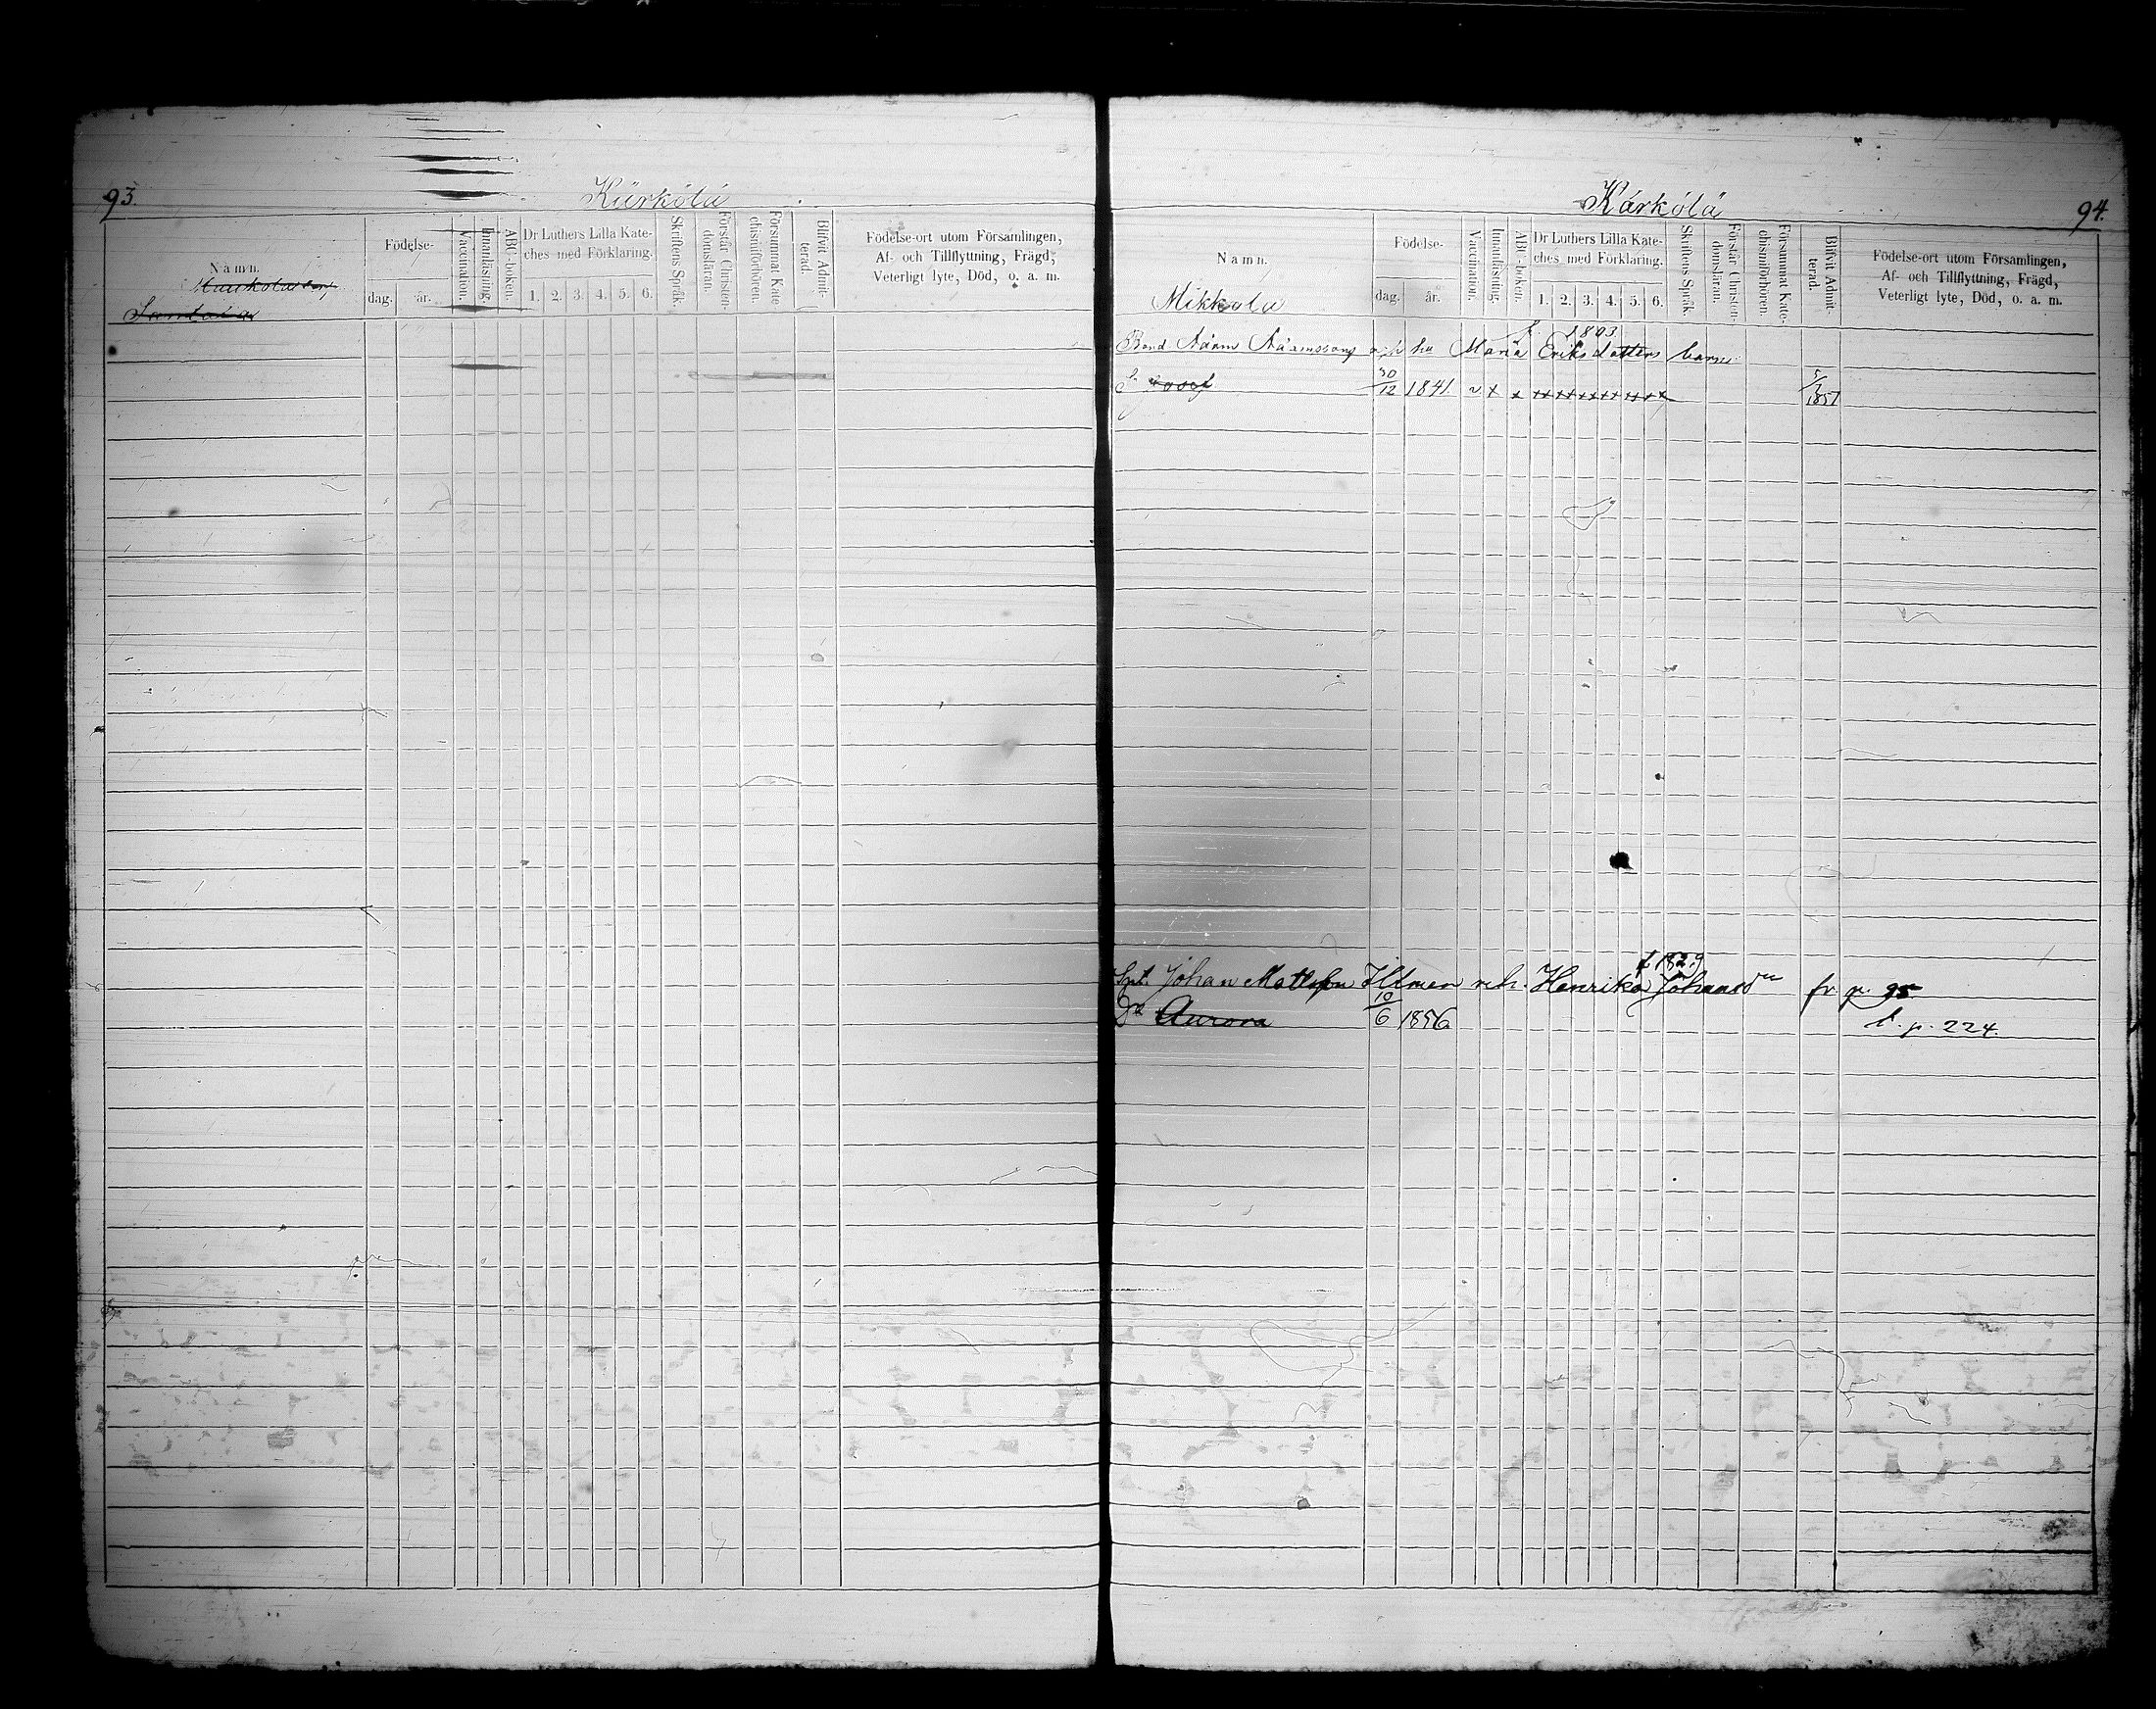 93.
Kärkölä
Namn.
Födelse-
dag.
år.
Vaccination.
Innanläsning.
ABC-boken.
Dr Luthers Lilla Kate-
ches med Förklaring.
1. 2. 3. 4. 5. 6.
Skriftens Språk.
Förstår Christen-
domsläran.
Försummat Kate-
chismiförhören.
Blifvit Admit-
terad.
Födelse-ort utom Församlingen,
Af- och Tillflyttning, Frägd,
Veterligt lyte, Död, o. a. m.
Kärkölä
94.
Namn.
Födelse-
dag.
år.
Vaccination.
Innanläsning.
ABC-boken.
Dr Luthers Lilla Kate-
ches med Förklaring.
1. 2. 3. 4. 5. 6.
Skriftens Språk.
Förstår Christen-
domsläran.
Försummat Kate-
chismiförhören.
Blifvit Admit-
terad.
Födelse-ort utom Församlingen,
Af- och Tillflyttning, Frägd,
Veterligt lyte, Död, o. a. m.
Mikkola
f. 1803
Bond Adam Adamssons o. h. hu Maria Eriks dotters barn
S. 30/12 1841. 5/7 1857
f 1829
Johan Matts Illmen o. h. Henrika Johansdr fr. p. 95
Dr Aurora 10/6 1856 t. p. 224.